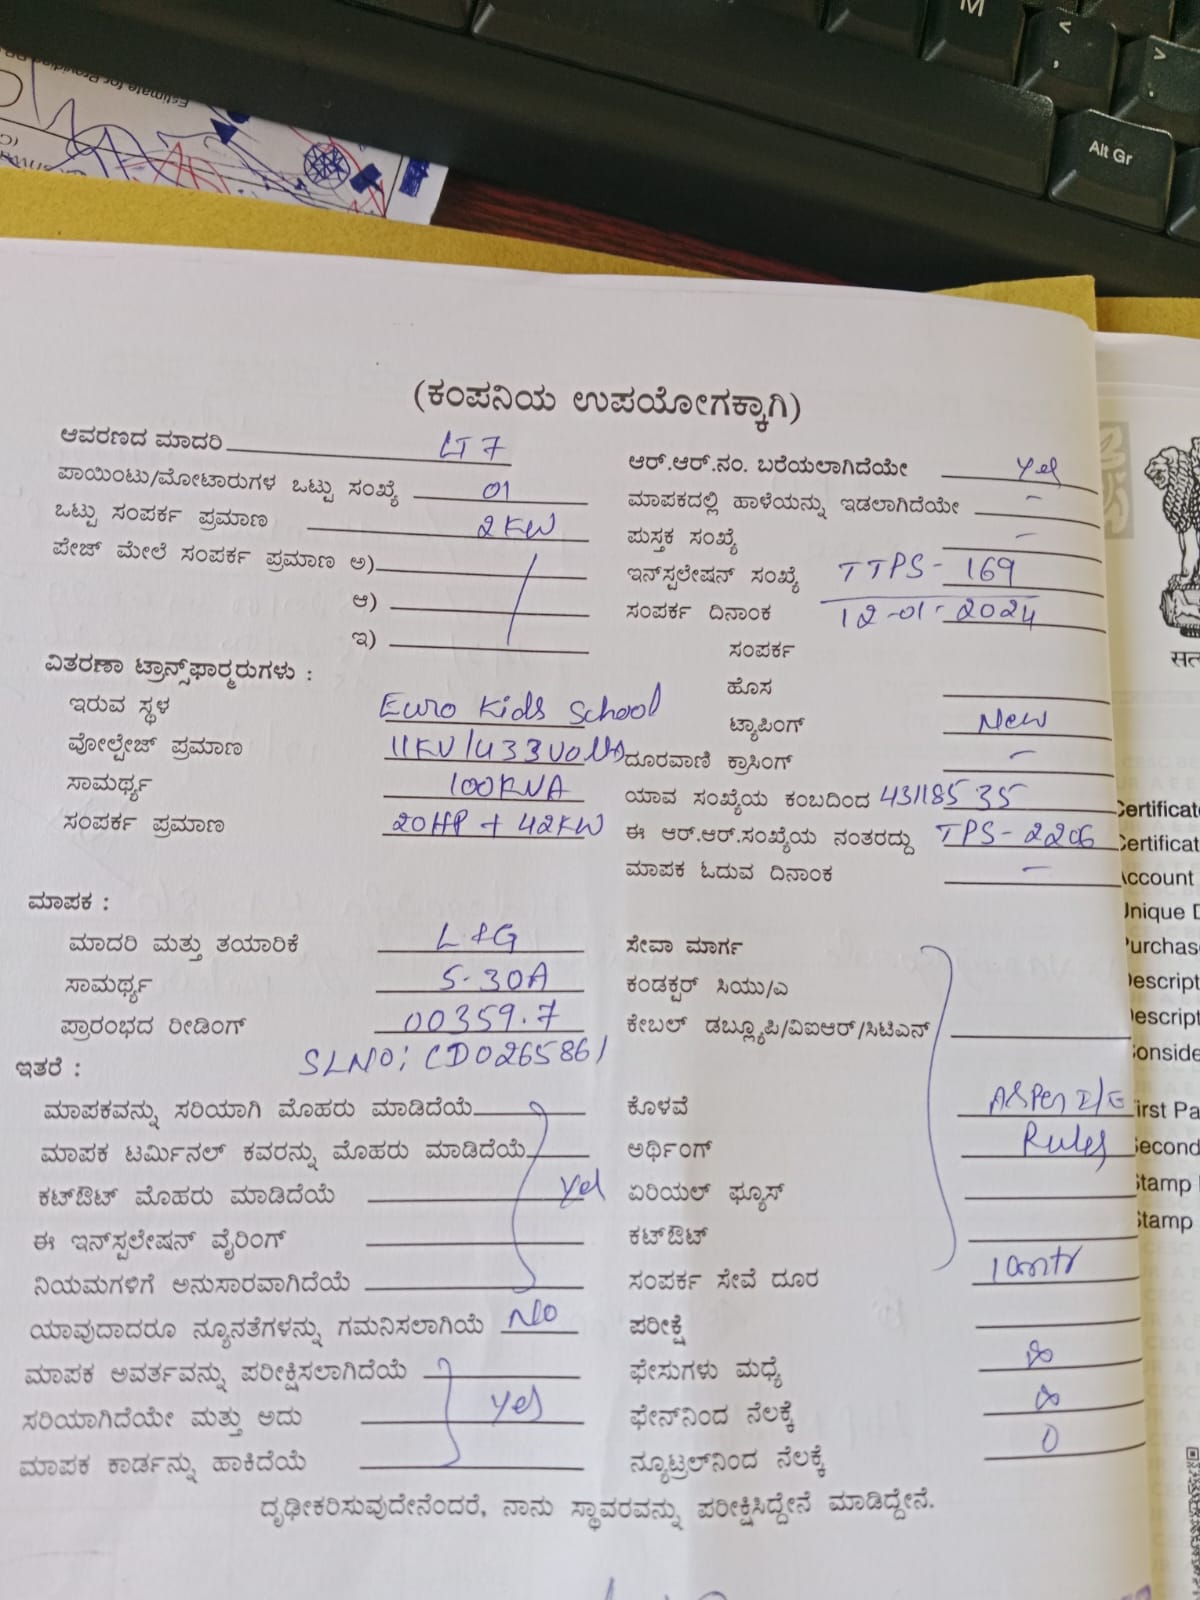 M
<
,
>
Alt Gr
Estimate for Provided
(ಕಂಪನಿಯ ಉಪಯೋಗಕ್ಕಾಗಿ)
ಆವರಣದ ಮಾದರಿ LT 7
ಪಾಯಿಂಟು/ಮೋಟಾರುಗಳ ಒಟ್ಟು ಸಂಖ್ಯೆ 01
ಒಟ್ಟು ಸಂಪರ್ಕ ಪ್ರಮಾಣ 2KW
ಪೇಜ್ ಮೇಲೆ ಸಂಪರ್ಕ ಪ್ರಮಾಣ ಅ)
ಆ)
ಇ)
ವಿತರಣಾ ಟ್ರಾನ್ಸ್‌ಫಾರ್‍ಮರುಗಳು :
ಇರುವ ಸ್ಥಳ Euro Kids School
ವೋಲ್ಟೇಜ್ ಪ್ರಮಾಣ 11KV/433Volts
ಸಾಮರ್ಥ್ಯ 100KVA
ಸಂಪರ್ಕ ಪ್ರಮಾಣ 20HP + 42KW
ಮಾಪಕ :
ಮಾದರಿ ಮತ್ತು ತಯಾರಿಕೆ L&G
ಸಾಮರ್ಥ್ಯ 5-30A
ಪ್ರಾರಂಭದ ರೀಡಿಂಗ್ 00359.7
SLNO: CD0265861
ಇತರೆ :
ಮಾಪಕವನ್ನು ಸರಿಯಾಗಿ ಮೊಹರು ಮಾಡಿದೆಯೆ
ಮಾಪಕ ಟರ್ಮಿನಲ್ ಕವರನ್ನು ಮೊಹರು ಮಾಡಿದೆಯೆ
ಕಟ್‌ಔಟ್ ಮೊಹರು ಮಾಡಿದೆಯೆ Yes
ಈ ಇನ್‌ಸ್ಪಲೇಷನ್ ವೈರಿಂಗ್
ನಿಯಮಗಳಿಗೆ ಅನುಸಾರವಾಗಿದೆಯೆ
ಯಾವುದಾದರೂ ನ್ಯೂನತೆಗಳನ್ನು ಗಮನಿಸಲಾಗಿಯೆ No
ಮಾಪಕ ಅವರ್ತವನ್ನು ಪರೀಕ್ಷಿಸಲಾಗಿದೆಯೆ
ಸರಿಯಾಗಿದೆಯೇ ಮತ್ತು ಅದು Yes
ಮಾಪಕ ಕಾರ್ಡನ್ನು ಹಾಕಿದೆಯೆ
ಆರ್.ಆರ್.ನಂ. ಬರೆಯಲಾಗಿದೆಯೇ Yes
ಮಾಪಕದಲ್ಲಿ ಹಾಳೆಯನ್ನು ಇಡಲಾಗಿದೆಯೇ -
ಪುಸ್ತಕ ಸಂಖ್ಯೆ -
ಇನ್‌ಸ್ಪಲೇಷನ್ ಸಂಖ್ಯೆ TTPS-169
ಸಂಪರ್ಕ ದಿನಾಂಕ 12-01-2024
ಸಂಪರ್ಕ
ಹೊಸ
ಟ್ಯಾಪಿಂಗ್ New
ದೂರವಾಣಿ ಕ್ರಾಸಿಂಗ್ -
ಯಾವ ಸಂಖ್ಯೆಯ ಕಂಬದಿಂದ 43118535
ಈ ಆರ್.ಆರ್.ಸಂಖ್ಯೆಯ ನಂತರದ್ದು TPS-2206
ಮಾಪಕ ಓದುವ ದಿನಾಂಕ -
ಸೇವಾ ಮಾರ್ಗ
ಕಂಡಕ್ಟರ್ ಸಿಯು/ಎ
ಕೇಬಲ್ ಡಬ್ಲ್ಯೂಪಿ/ವಿಐಆರ್/ಸಿಟಿಎನ್
ಕೊಳವೆ As per I/G
ಅರ್ಥಿಂಗ್ Rules
ಏರಿಯಲ್ ಫ್ಯೂಸ್
ಕಟ್‌ಔಟ್
ಸಂಪರ್ಕ ಸೇವೆ ದೂರ 10mtr
ಪರೀಕ್ಷೆ
ಫೇಸುಗಳು ಮಧ್ಯೆ ∞
ಫೇಸ್‌ನಿಂದ ನೆಲಕ್ಕೆ ∞
ನ್ಯೂಟ್ರಲ್‌ನಿಂದ ನೆಲಕ್ಕೆ 0
ದೃಢೀಕರಿಸುವುದೇನೆಂದರೆ, ನಾನು ಸ್ಥಾವರವನ್ನು ಪರೀಕ್ಷಿಸಿದ್ದೇನೆ ಮಾಡಿದ್ದೇನೆ.
सत्य
Certificate
Certificate
Account
Unique D
Purchase
Descript
Descript
Conside
First Pa
Second
Stamp
Stamp